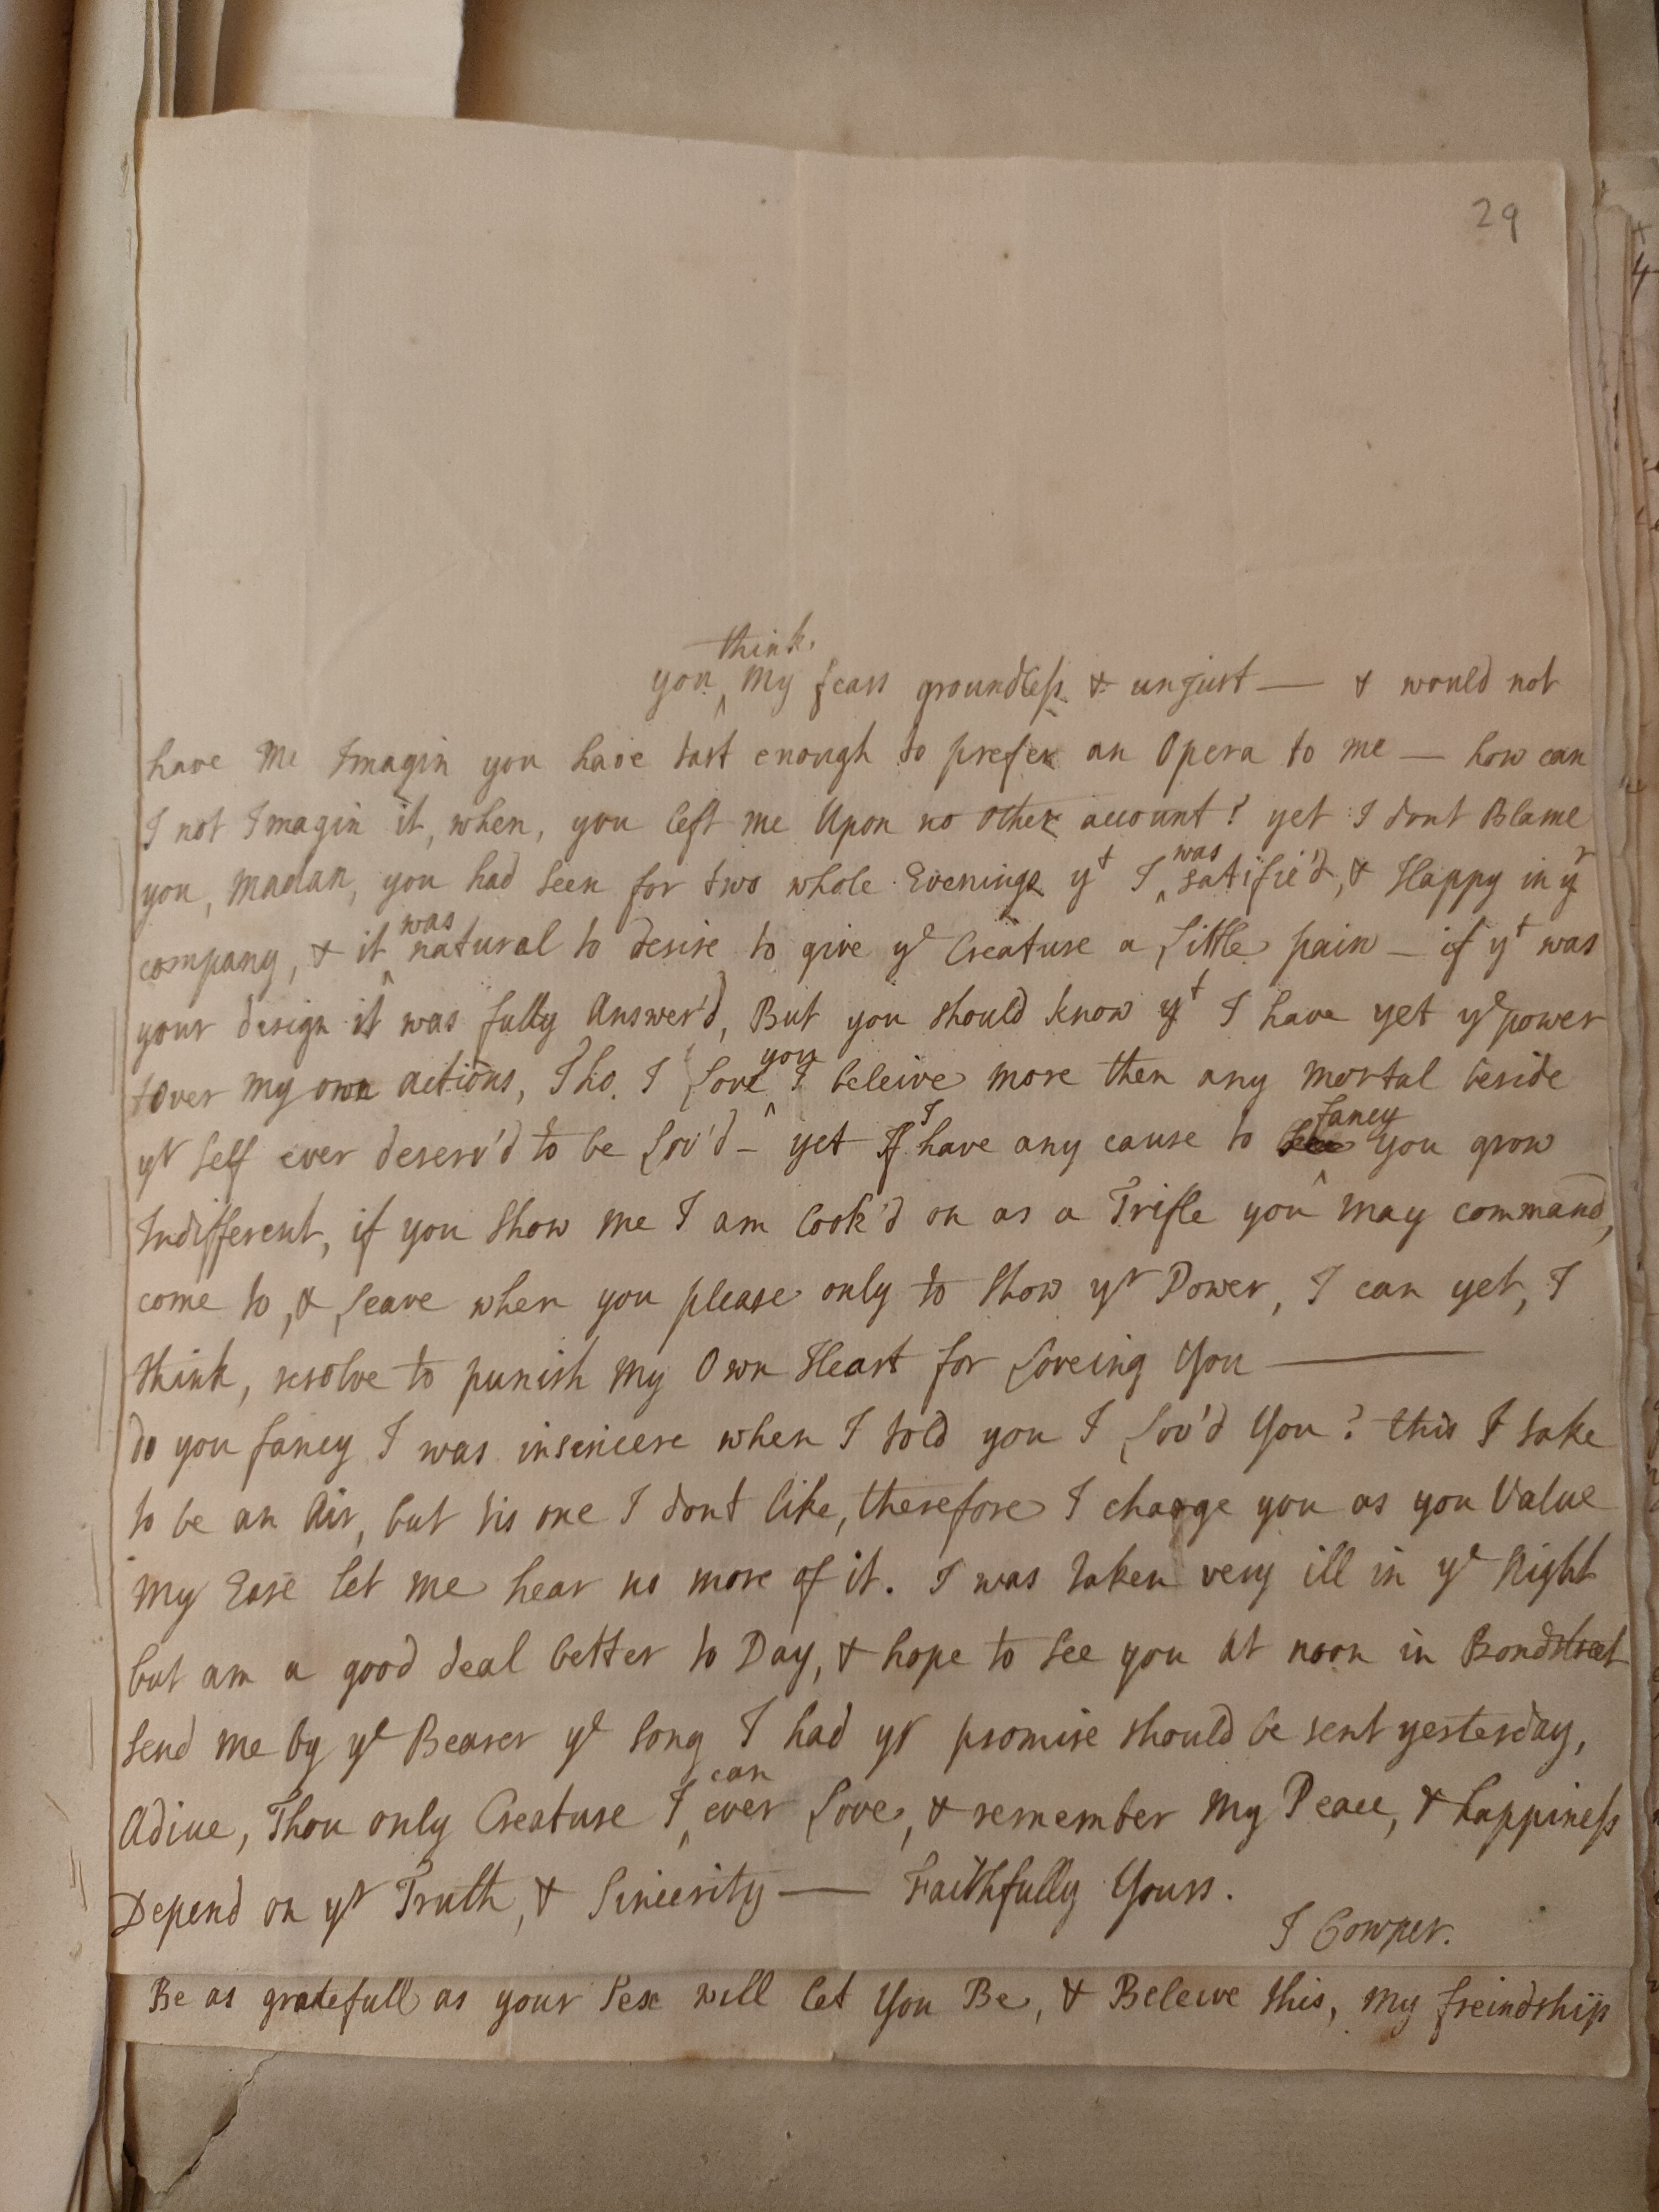 29
you think. my fears groundless & unjust — & would not
have me Imagin you have tast enough to prefer an Opera to me — how can
I not Imagin it, when, you left me Upon no other account? yet I dont Blame
you, Madam, you had seen for two whole Evenings yt I was satifie'd, & Happy in yr
company, & it was natural to desire to give ye Creature a little pain — if yt was
your design it was fully Answer'd, But you should know yt I have yet ye power
over my own actions, Tho. I Love you I beleive more then any mortal beside
yr self ever deserv'd to be Lov'd — yet If I have any cause to fancy you grow
Indifferent, if you show me I am look'd on as a Trifle you may command,
come to, & leave when you please only to show yr Power, I can yet, I
think, resolve to punish my Own Heart for Loveing You —
do you fancy I was insincere when I told you I Lov'd You? this I take
to be an Air, but tis one I dont like, therefore I charge you as you Value
my Ease let me hear no more of it. I was taken very ill in ye Night
but am a good deal better to Day, & hope to see you at noon in Bondstreet
send me by ye Bearer ye song I had yr promise should be sent yesterday,
Adiue, Thou only Creature I can ever Love, & remember my Peace, & happiness
Depend on yr Truth, & Sincerity — Faithfully Yours.
J Cowper.
Be as gratefull as your Sex will let You Be, & Beleive this, my freindship